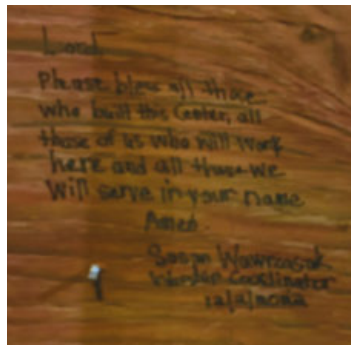 Lord
Please bless all those
who built this Center, all
those of us who will work
here and all those we
will serve in your name
Amen.
Susan
Coordinator